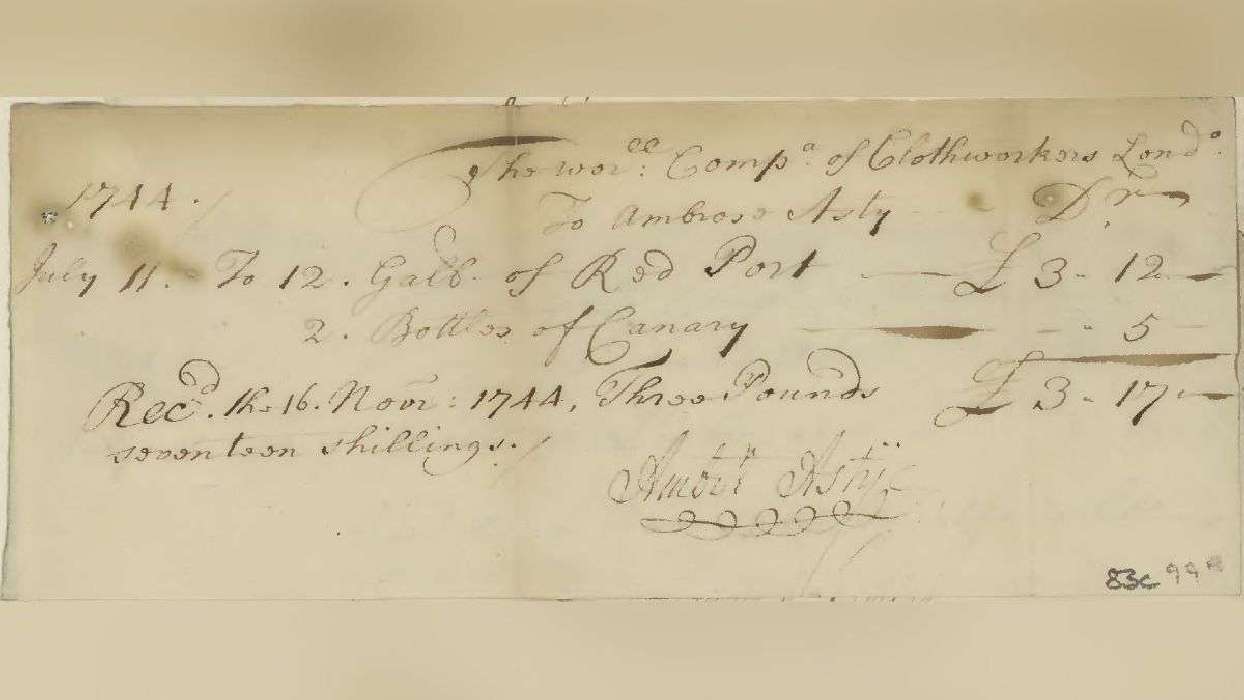 The wor.ll Comp.a of Clothworkers Lond.o
1744.
To Ambrose Asty Dr
July 11. To 12. Gall.s of Red Port £ 3 - 12 -
2. Bottles of Canary - - 5 -
Rec.d the 16. Nov.r: 1744, Three Pounds £ 3 - 17 -
seventeen shillings.
Asty
83c 99